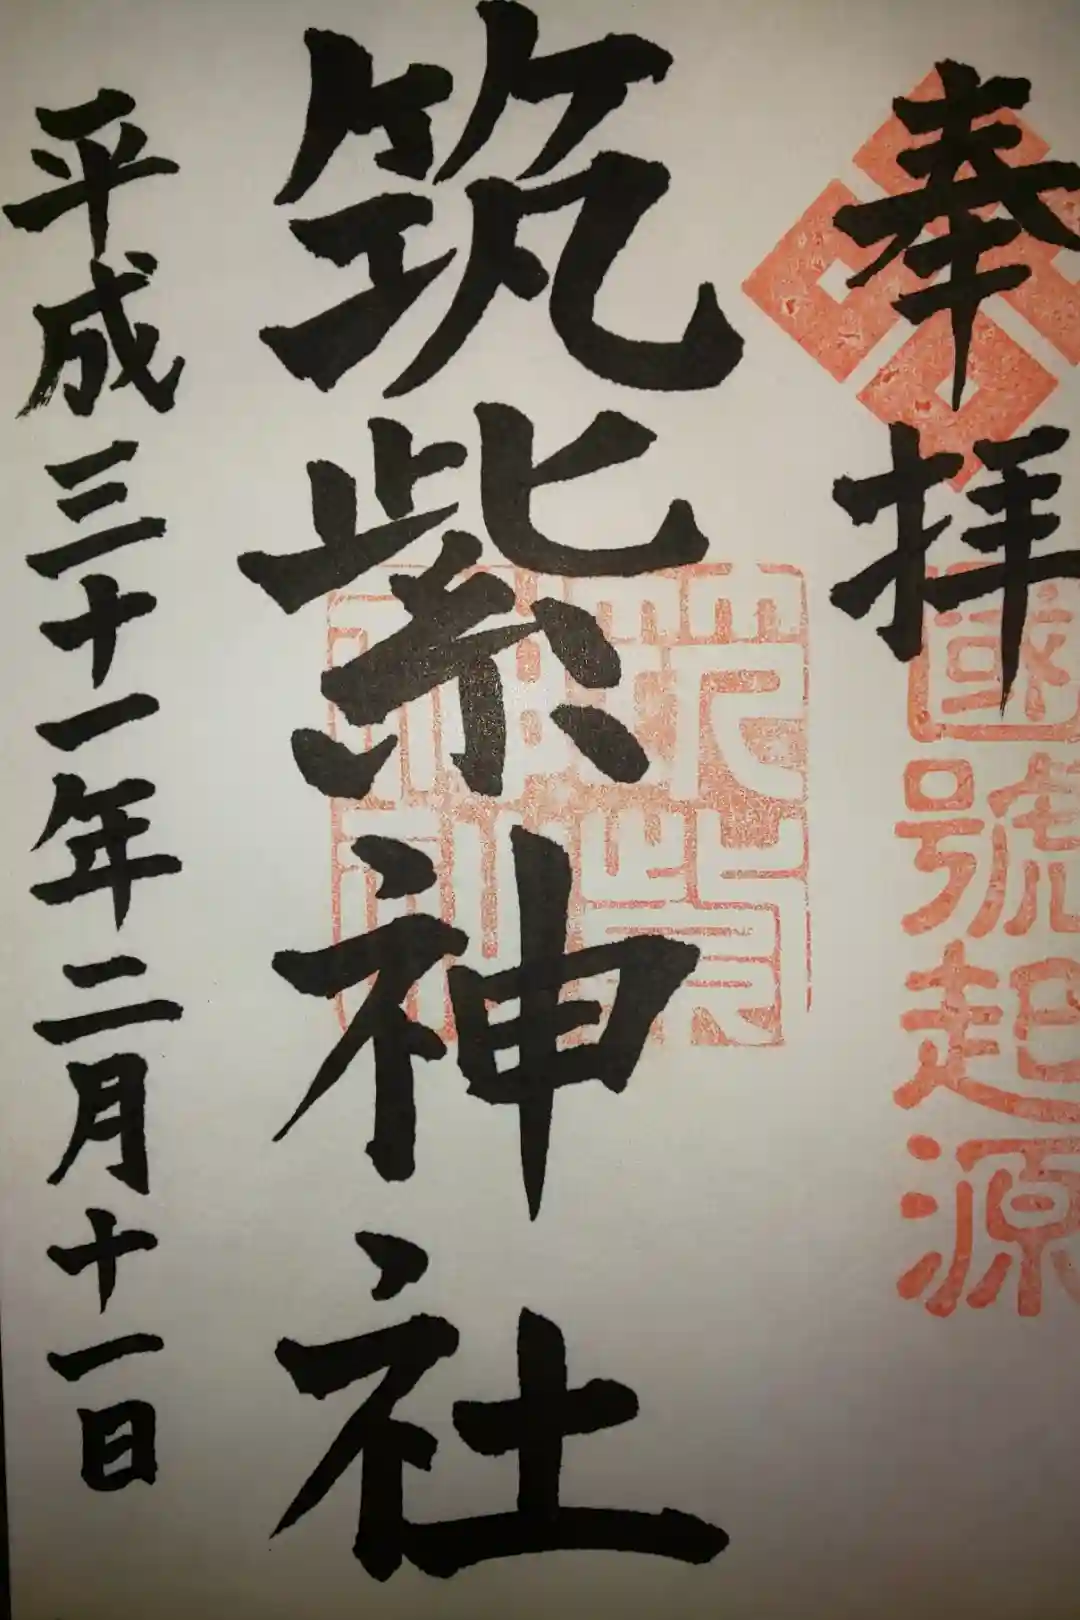 奉拝
國號起源
筑紫神社
筑紫神社
平成三十一年二月十一日